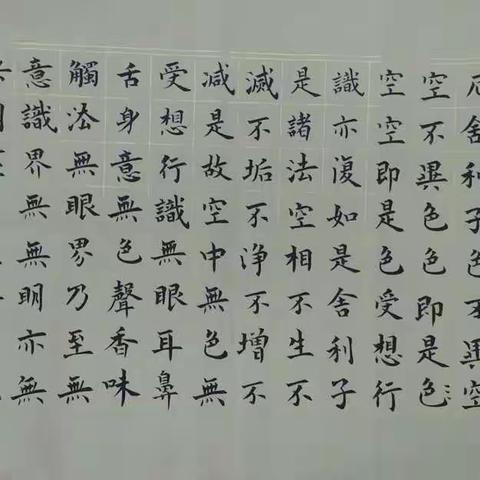 厄舍利子色不異空
空不異色色即是色
空空即是色受想行
識亦復如是舍利子
是諸法空相不生不
滅不垢不淨不增不
减是故空中無色無
受想行識無眼耳鼻
舌身意無色聲香味
觸法無眼界乃至無
意識界無無明亦無